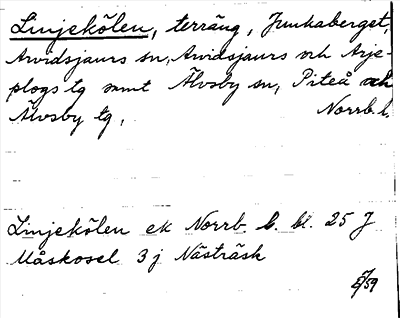 Linjekölen, terräng, Junkaberget,
Arvidsjaurs sn, Arvidsjaurs och Arje-
plogs tg samt Älvsby sn, Piteå och
Älvsby tg, Norrb. l.
Linjekölen ek Norrb. l. bl. 25 J
Måskosel 3 j Nästräsk
/59